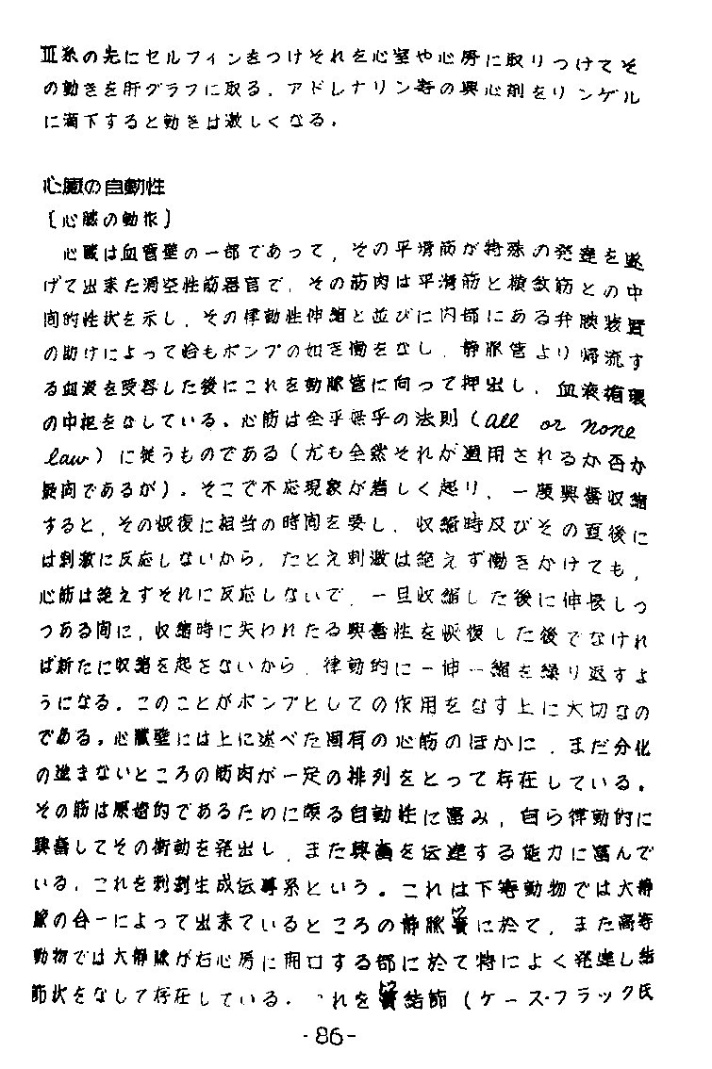 Ⅲ糸の先にセルフィンをつけそれを心室や心房に取りつけてそ
の動きを肝グラフに取る。アドレナリン等の興心剤をリンゲル
に滴下すると動きは激しくなる。
心臓の自動性
〔心臓の動作〕
心臓は血管壁の一部であって,その平滑筋が特殊の発達を遂
げて出来た洞空性筋器官で,その筋肉は平滑筋と横紋筋との中
間的性状を示し,その律動性伸縮と並びに内部にある弁膜装置
の助けによって恰もポンプの如き働をなし,静脈管より帰流す
る血液を受容した後にこれを動脈管に向って押出し,血液循環
の中枢をなしている。心筋は全乎無乎の法則(all or none
law)に従うものである(尤も全然それが適用されるか否か
疑問であるが)。そこで不応現象が著しく起り,一度興奮収縮
すると,その恢復に相当の時間を要し,収縮時及びその直後に
は刺激に反応しないから,たとえ刺激は絶えず働きかけても,
心筋は絶えずそれに反応しないで,一旦収縮した後に伸長しつ
つある間に,収縮時に失われたる興奮性を恢復した後でなけれ
ば新たに収縮を起さないから,律動的に一伸一縮を繰り返すよ
うになる。このことがポンプとしての作用をなす上に大切なの
である。心臓壁には上に述べた固有の心筋のほかに,まだ分化
の進まないところの筋肉が一定の排列をとって存在している。
その筋は原始的であるために頗る自動性に富み,自ら律動的に
興奮してその衝動を発出し,また興奮を伝達する能力に富んで
いる。これを刺激生成伝導系という。これは下等動物では大静
脈の合一によって出来ているところの静脈竇に於て,また高等
動物では大静脈が右心房に開口する部に於て特によく発達し結
節状をなして存在している。これを竇結節(ケース・フラック氏
-86-